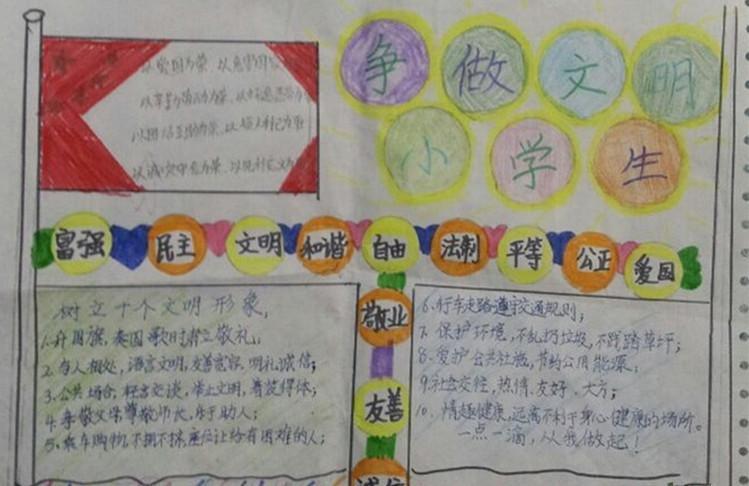 争做文明
小学生
以爱国为荣、以危害
以辛勤劳动为荣、以
以团结互助为荣、以损人利己为
以诚实守信为荣、以见利忘义为
富强 民主 文明 和谐 自由 法制 平等 公正 爱国
敬业
友善
诚信
树立十个文明形象,
1.升国旗,奏国歌时肃立敬礼;
2.与人相处,语言文明,友善宽容,明礼诚信;
3.公共场合,轻言交谈,举止文明,着装得体;
4.孝敬父母,尊敬师长,乐于助人;
5.乘车购物,不拥不挤,座位让给有困难的人;
6.行车走路遵守交通规则;
7.保护环境,不乱扔垃圾,不践踏草坪;
8.爱护公共设施,节约公用能源;
9.社会交往,热情、友好、大方;
10.情趣健康,远离不利于身心健康的场所。
一点一滴,从我做起!